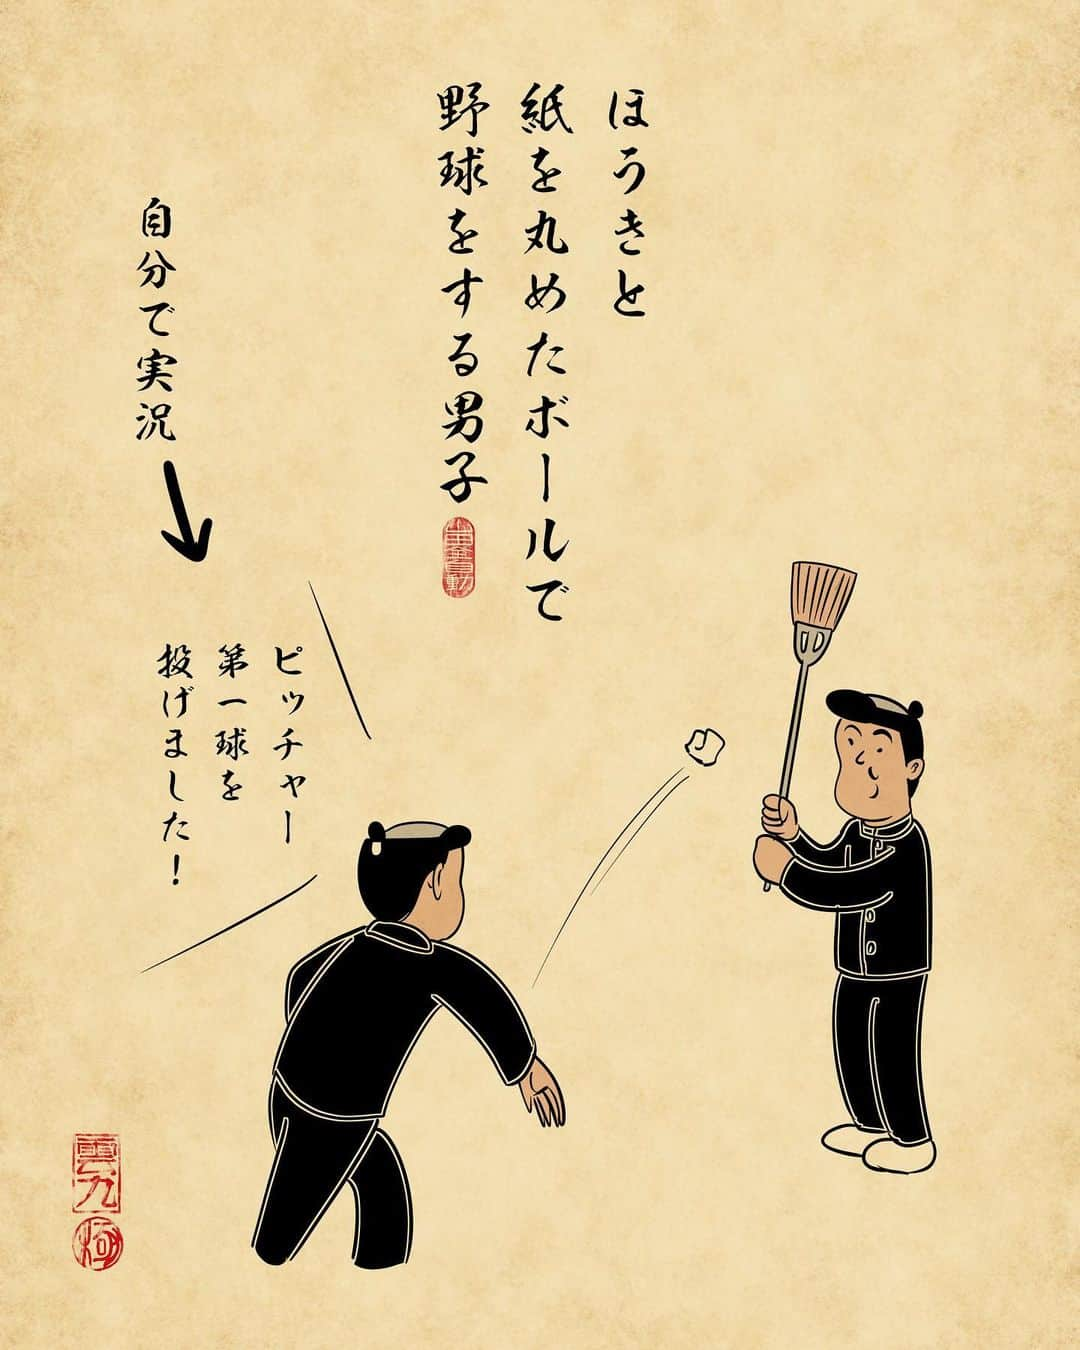 ほうきと
紙を丸めたボールで
野球をする男子
自分で実況
ピッチャー
第一球を
投げました！